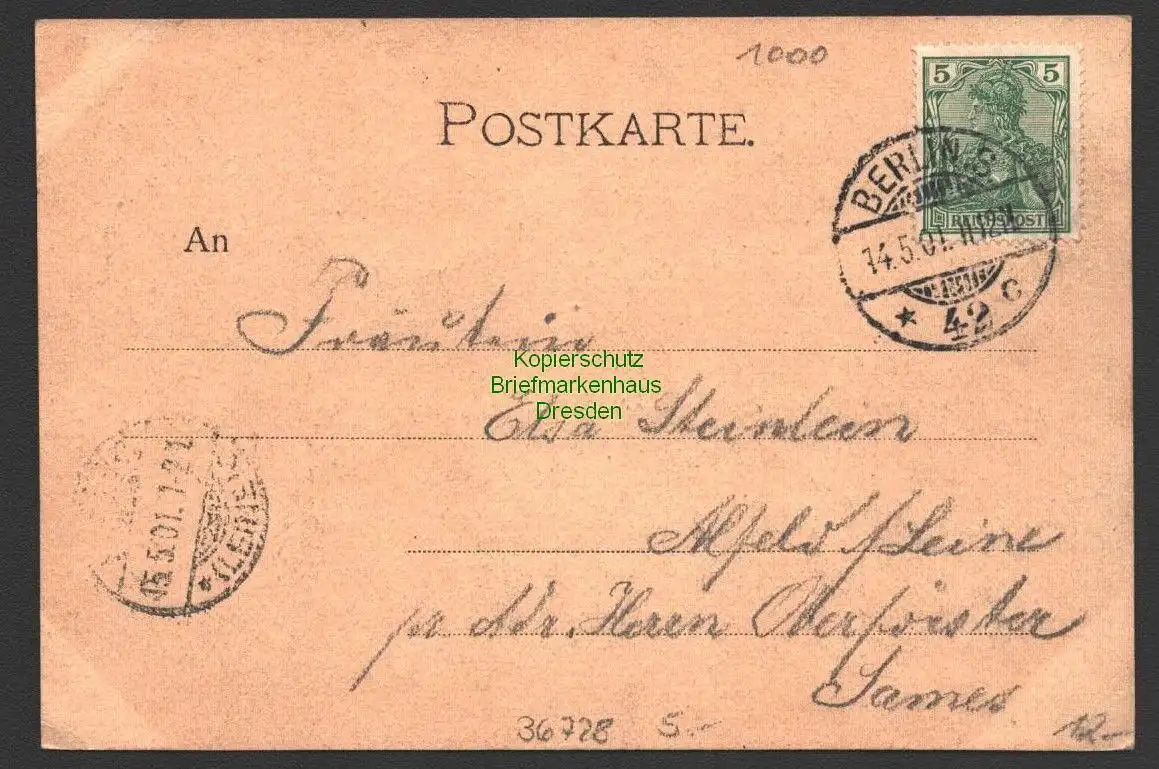 1000
POSTKARTE.
5 5
REICHSPOST
BERLIN S
14.5.01. 11-12 V.
* 42 c
An
Fräulein
Kopierschutz
Briefmarkenhaus
Dresden
Elsa Steinlein
Alfeld /Leine
pr Adr. Herrn Oberförster
Sames
15.5.01. 1-2
*(LEINE)
36728 5.-
12.-